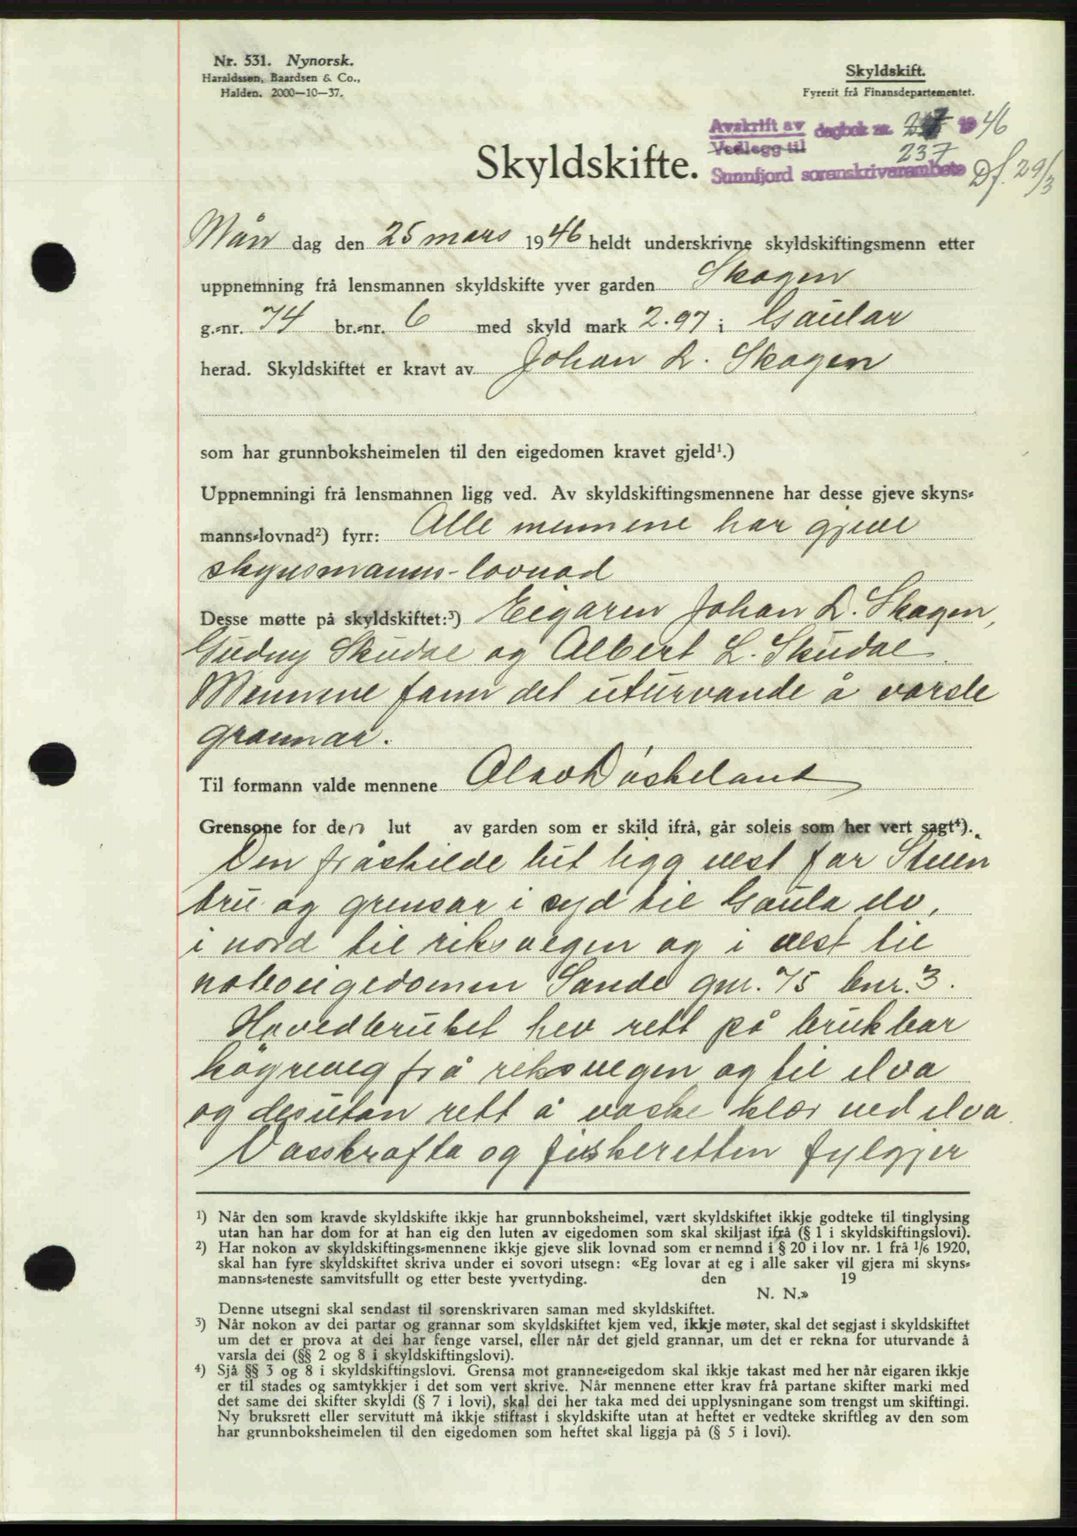 Nr. 531. Nynorsk.
Haraldssen, Baardsen & Co.,
Halden. 2000—10—37.
Skyldskift.
Fyrerit frå Finansdepartementet.
Avskrift av dagbok nr. 1946
Vedlegg til 237
Sunnfjord sorenskriverembete Df. 29/3
Skyldskifte.
Mån dag den 25 mars 1946 heldt underskrivne skyldskiftingsmenn etter
uppnemning frå lensmannen skyldskifte yver garden Skogen
g.-nr. 74 br.-nr. 6 med skyld mark 2.97 i Gaular
herad. Skyldskiftet er kravt av Johan L. Skogen
som har grunnboksheimelen til den eigedomen kravet gjeld¹.)
Uppnemningi frå lensmannen ligg ved. Av skyldskiftingsmennene har desse gjeve skyns-
manns-lovnad²) fyrr: Alle mennene har gjeve
skynsmanns-lovnad
Desse møtte på skyldskiftet:³) Eigaren Johan L. Skogen,
Gudny Skudal og Albert L. Skudal.
Mennene fann det uturvande å varsle
grannar.
Til formann valde mennene Olav Døskeland
Grensone for den lut av garden som er skild ifrå, går soleis som her vert sagt⁴).
Den fråskilde lut ligg vest for Steen
bru og grensar i syd til Gaula elv,
i nord til riksvegen og i vest til
naboeigedomen Sande gnr. 75 bnr. 3.
Hovedbruket hev rett på brukbar
høgreveg frå riksvegen og til elva
og desutan rett å vaske klær ved elva.
Vasskrafta og fiskeretten fylgjer
¹) Når den som kravde skyldskifte ikkje har grunnboksheimel, vært skyldskiftet ikkje godteke til tinglysing
utan han har dom for at han eig den luten av eigedomen som skal skiljast ifrå (§ 1 i skyldskiftingslovi).
²) Har nokon av skyldskiftings-mennene ikkje gjeve slik lovnad som er nemnd i § 20 i lov nr. 1 frå 1/6 1920,
skal han fyre skyldskiftet skriva under ei sovori utsegn: «Eg lovar at eg i alle saker vil gjera mi skyns-
manns-teneste samvitsfullt og etter beste yvertyding. den 19
N. N.»
Denne utsegni skal sendast til sorenskrivaren saman med skyldskiftet.
³) Når nokon av dei partar og grannar som skyldskiftet kjem ved, ikkje møter, skal det segjast i skyldskiftet
um det er prova at dei har fenge varsel, eller når det gjeld grannar, um det er rekna for uturvande å
varsla dei (§§ 2 og 8 i skyldskiftingslovi).
⁴) Sjå §§ 3 og 8 i skyldskiftingslovi. Grensa mot granne-eigedom skal ikkje takast med her når eigaren ikkje
er til stades og samtykkjer i det som vert skrive. Når mennene etter krav frå partane skifter marki med
det same dei skifter skyldi (§ 7 i lovi), skal dei her taka med dei upplysningane som trengst um skiftingi.
Ny bruksrett eller servitutt må ikkje stiftast i skyldskifte utan at heftet er vedteke skriftleg av den som
har grunnboksheimelen til den eigedomen som heftet skal liggja på (§ 5 i lovi).